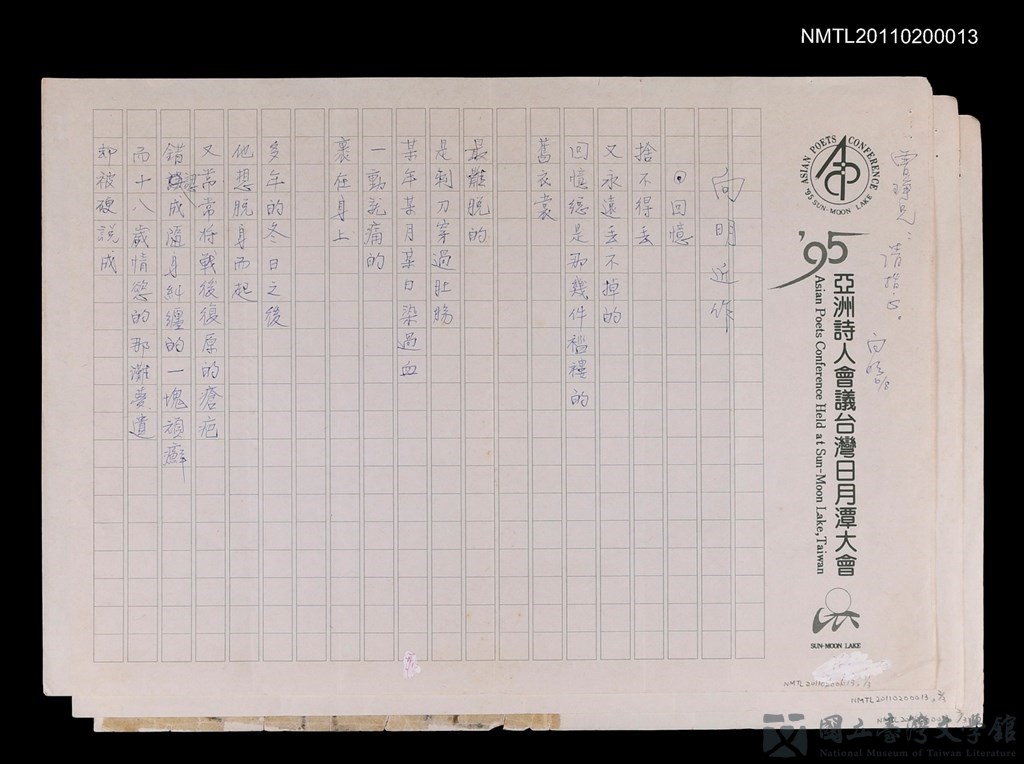 NMTL20110200013
請指正。
向明
ASIAN POETS CONFERENCE
'95 SUN-MOON LAKE
'95
亞洲詩人會議台灣日月潭大會
Asian Poets Conference Held at Sun-Moon Lake, Taiwan
SUN-MOON LAKE
向明近作
⊙回憶
捨不得丟
又永遠丟不掉的
回憶總是那幾件襤褸的
舊衣裳
最難脫的
是刺刀穿過肚腸
某年某月某日染過血
一動就痛的
裹在身上
多年的冬日之後
他想脫身而起
又常常將戰後復原的瘡疤
錯認成隨身糾纏的一塊頑癬
而十八歲情慾的那灘夢遺
卻被硬說成
NMTL20110200013
NMTL20110200013
國立臺灣文學館
National Museum of Taiwan Literature